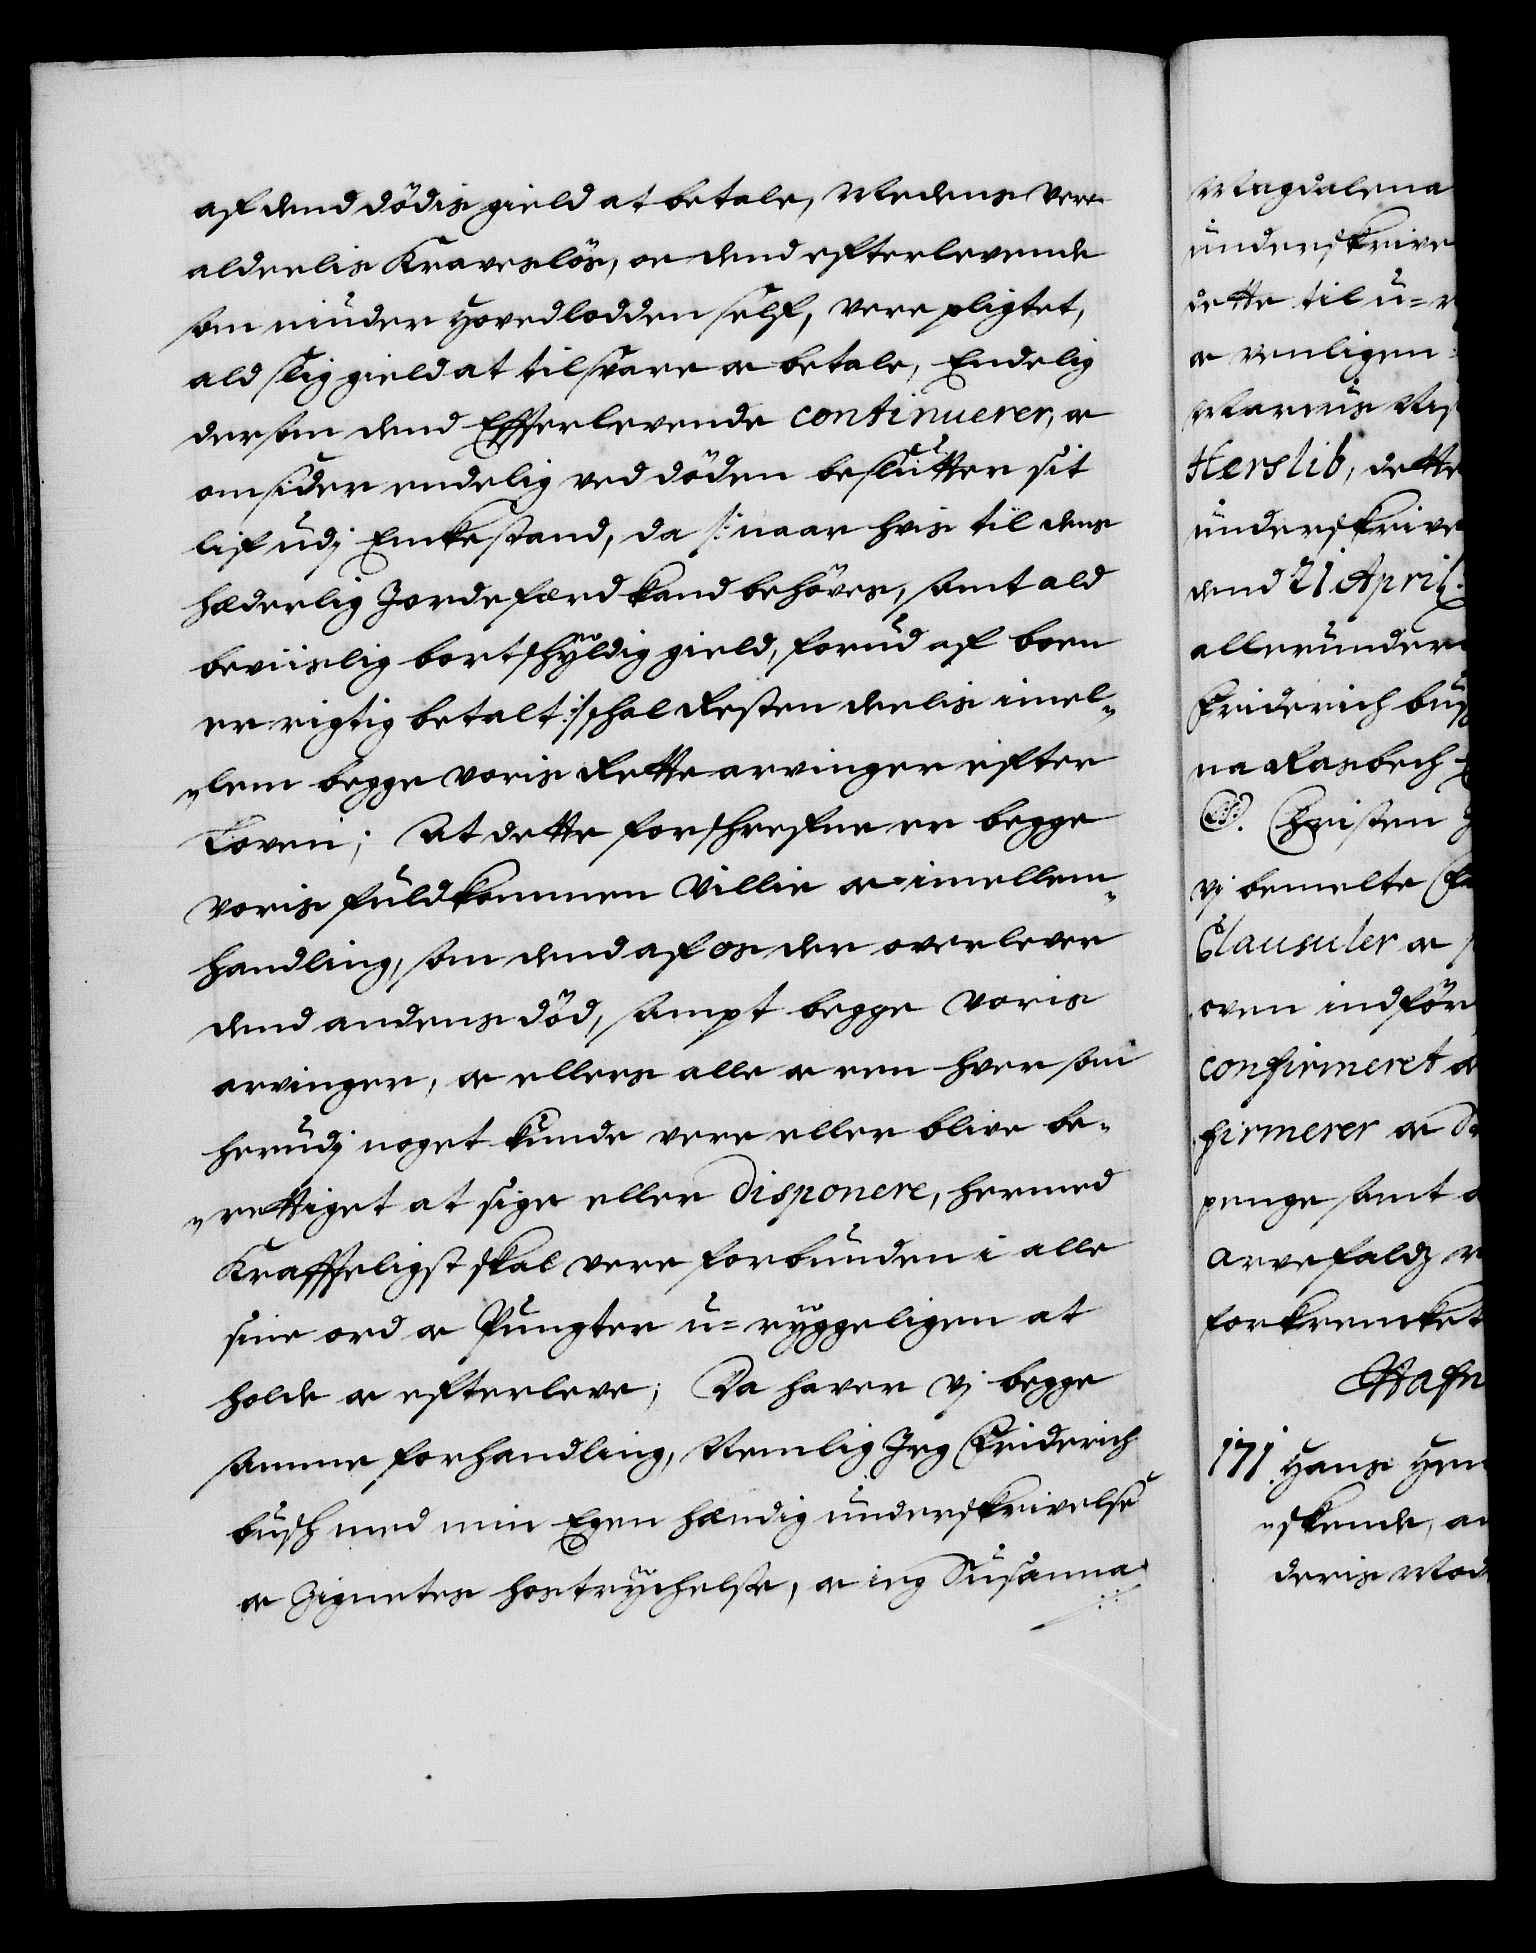 af dend dödis gield at betale, Medens vere
alderlis Kraveslös, og dend efterlevende
som niuder Hovedlodden self, vere pligtet,
ald slig gield at tilsvare og betale, Endelig
dersom dend Efterlevende continuerer, og
omsider endelig ved döden beslutter sit
lif udj Enkestand, da /: naar hvis til dens
hæderlig Jordefærd kand behöves, samt ald
beviislig bortschyldig gield, forud af boen
er rigtig betalt :/ schal Resten deelis imel„
„lem begge voris Rette arvinger efter
Loven; At dette forschrefne er begge
voris fuldkommen Villie og imellem„
handling, som dend af os der overlever
dend andens död, sampt begge voris
arvinger, og ellers alle og een hver som
herudj noget kunde vere eller blive be„
„rettiget at sige eller disponere, hermed
Kraffteligst skal vere forbunden i alle
sine ord og Pungter u=ryggeligen at
holde og efterleve; Da haver vj begge
samme forhandling, Nemlig Jeg Friderich
busch med min Egen hændig underskrivelse
og Zignetes hostrychelse, og ieg Susanna
Magdalena
underskrive
dette til u=
og venligen
Marcus
Herslib, dette
underskrive
dend 21 April.
allerunder
Friderich bus
na Rasbech
Christen
vj bemelte
Clausuler og
oven indför
confirmeret og
firmerer og
penge samt
arvefald
forkrencket
Hafn
171. Hans
„skende,
deris Mod